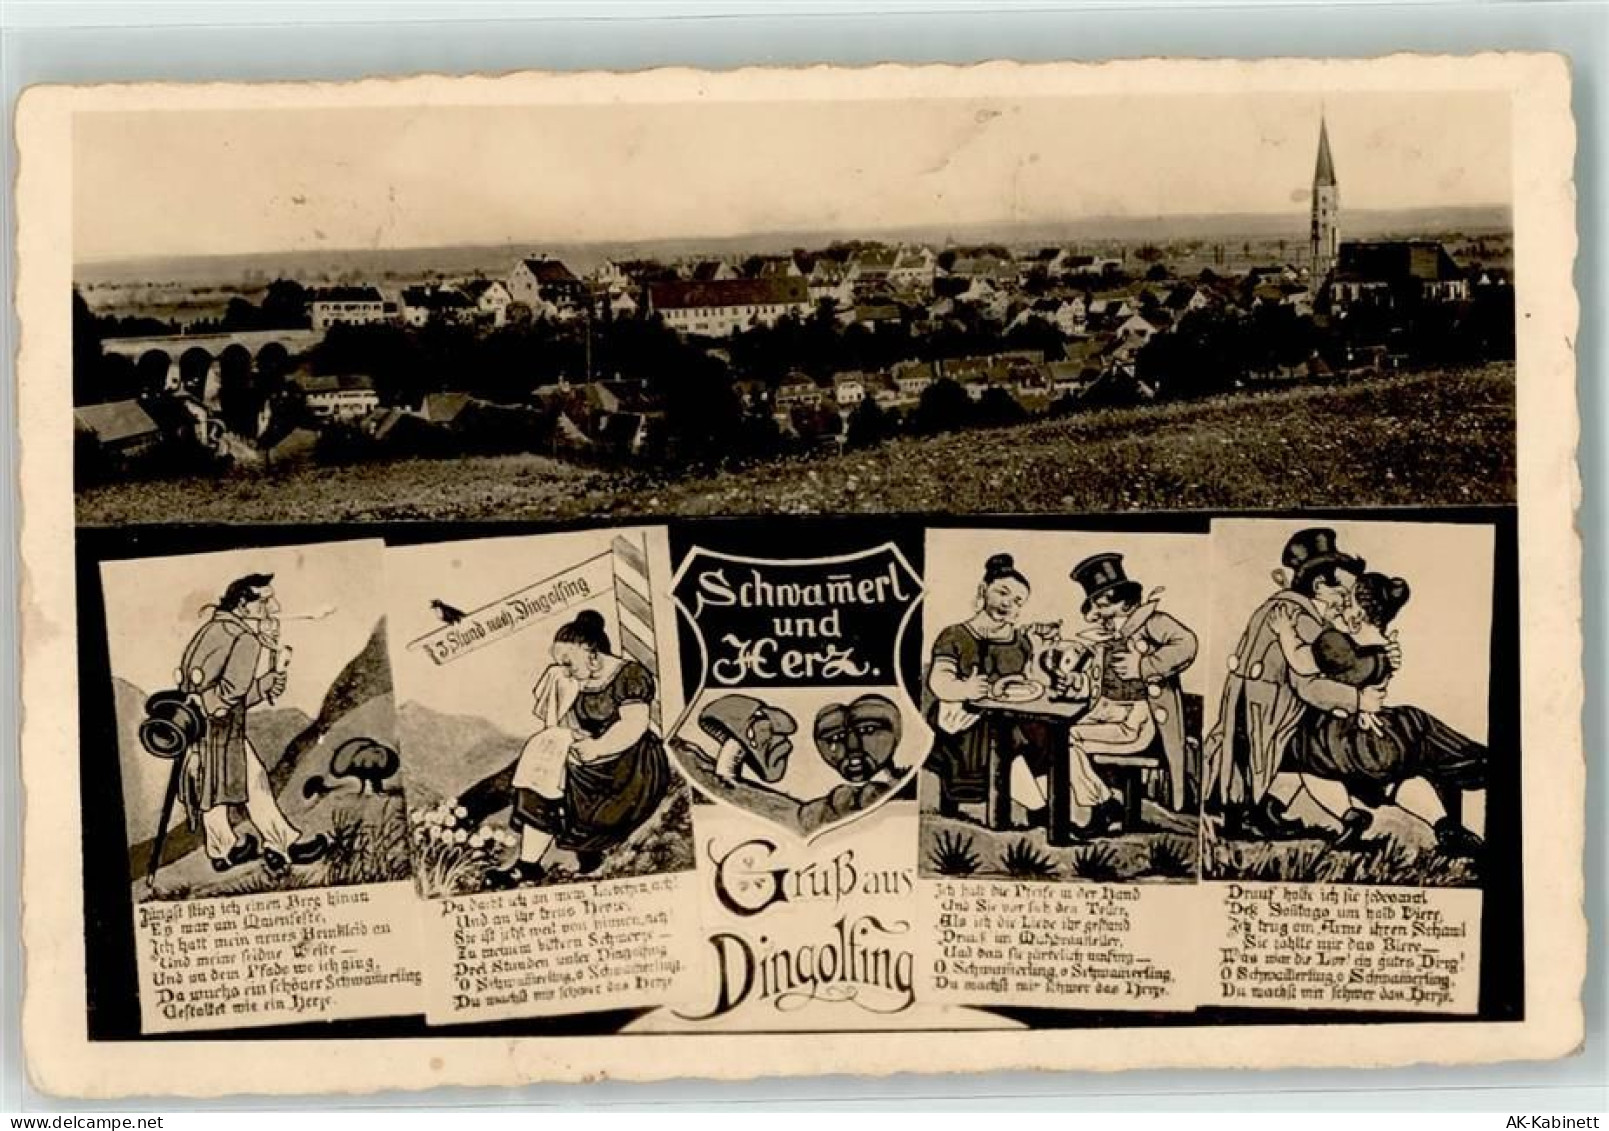 3 Stund nach Dingolfing
Schwam̅erl
und
Herz.
Gruß aus
Dingolfing
Jüngst stieg ich einen Berg hinan
Es war am Maienfeste,
Ich hatt mein neues Beinkleid an
Und meine seidne Weste —
Und an dem Pfade wo ich ging,
Da wuchs ein schöner Schwamerling
Gestaltet wie ein Herze.
Da dacht ich an mein Liebchen, ach!
Und an ihr treus Herze,
Sie ist jetzt weit von hinnen, ach!
Zu meinem bittern Schmerze —
Drei Stunden unter Dingolfing
O Schwamerling, o Schwamerling,
Du machst mir schwer das Herze
Ich hielt die Pfeife in der Hand
Und Sie vor sich den Teller,
Als ich die Liebe ihr gestand
Drauß im
Und dan sie zärtlich umfing —
O Schwamerling, o Schwamerling,
Du machst mir schwer das Herze.
Drauf holte ich sie jedesmal
Deß Sonntags um halb Viere,
Ich trug am Arme ihren Schawl
Sie zahlte mir das Biere —
Was war die Lor' ein gutes Ding!
O Schwamerling, o Schwamerling,
Du machst mir schwer das Herze.
AK-Kabinett